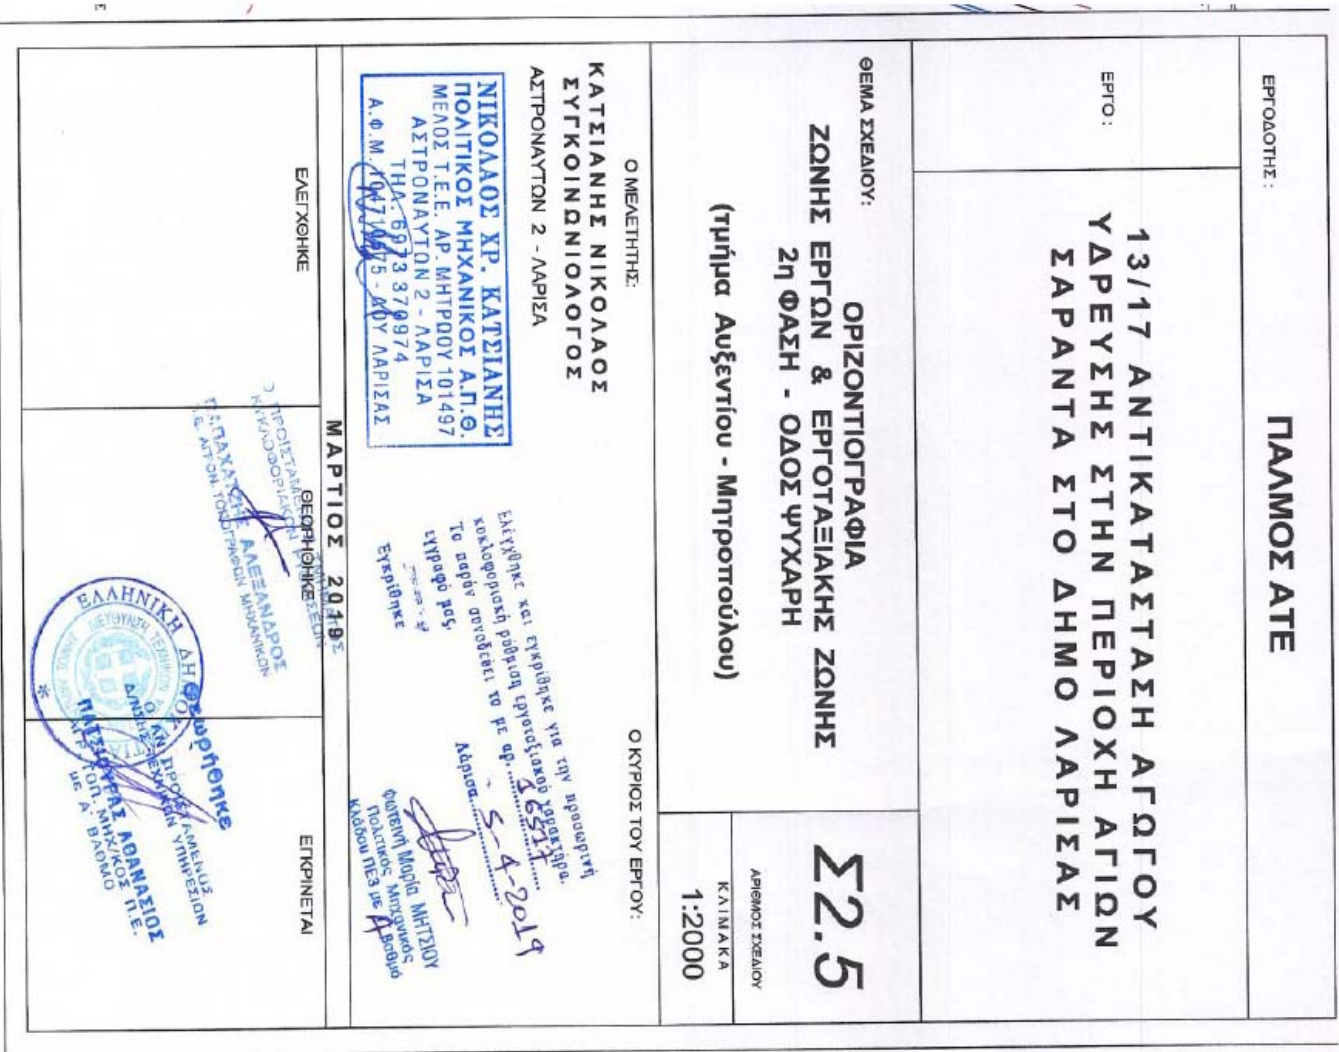 ΕΡΓΟΔΟΤΗΣ :
ΠΑΛΜΟΣ ΑΤΕ
ΕΡΓΟ :
13/17 ΑΝΤΙΚΑΤΑΣΤΑΣΗ ΑΓΩΓΟΥ
ΥΔΡΕΥΣΗΣ ΣΤΗΝ ΠΕΡΙΟΧΗ ΑΓΙΩΝ
ΣΑΡΑΝΤΑ ΣΤΟ ΔΗΜΟ ΛΑΡΙΣΑΣ
ΘΕΜΑ ΣΧΕΔΙΟΥ:
ΟΡΙΖΟΝΤΙΟΓΡΑΦΙΑ
ΖΩΝΗΣ ΕΡΓΩΝ & ΕΡΓΟΤΑΞΙΑΚΗΣ ΖΩΝΗΣ
2η ΦΑΣΗ - ΟΔΟΣ ΨΥΧΑΡΗ
(τμήμα Αυξεντίου - Μητροπούλου)
Σ2.5
ΑΡΙΘΜΟΣ ΣΧΕΔΙΟΥ
ΚΛΙΜΑΚΑ
1:2000
Ο ΜΕΛΕΤΗΤΗΣ:
ΚΑΤΣΙΑΝΗΣ ΝΙΚΟΛΑΟΣ
ΣΥΓΚΟΙΝΩΝΙΟΛΟΓΟΣ
ΑΣΤΡΟΝΑΥΤΩΝ 2 - ΛΑΡΙΣΑ
ΝΙΚΟΛΑΟΣ ΧΡ. ΚΑΤΣΙΑΝΗΣ
ΠΟΛΙΤΙΚΟΣ ΜΗΧΑΝΙΚΟΣ Α.Π.Θ.
ΜΕΛΟΣ Τ.Ε.Ε. ΑΡ. ΜΗΤΡΩΟΥ 101497
ΑΣΤΡΟΝΑΥΤΩΝ 2 - ΛΑΡΙΣΑ
ΤΗΛ. 6973 370974
Α.Φ.Μ. - ΔΟΥ ΛΑΡΙΣΑΣ
Ο ΚΥΡΙΟΣ ΤΟΥ ΕΡΓΟΥ:
Ελέγχθηκε και εγκρίθηκε για την προσωρινή
κυκλοφοριακή ρύθμιση εργοταξιακού χαρακτήρα.
Το παρόν συνοδεύει το με αρ. 16517
έγγραφό μας.
Λάρισα - 5-4-2019
Εγκρίθηκε
Φωτεινή Μαρία ΜΗΤΣΙΟΥ
Πολιτικός Μηχανικός
Κλάδου ΠΕ3 με Α Βαθμό
ΜΑΡΤΙΟΣ 2019
ΕΛΕΓΧΘΗΚΕ
ΘΕΩΡΗΘΗΚΕ
ΕΓΚΡΙΝΕΤΑΙ
ΑΛΕΞΑΝΔΡΟΣ
ΕΛΛΗΝΙΚΗ
Θεωρήθηκε
ΠΑΤΣΙΟΥΡΑΣ ΑΘΑΝΑΣΙΟΣ
ΜΗΧ/ΚΟΣ Π.Ε.
με Α' ΒΑΘΜΟ